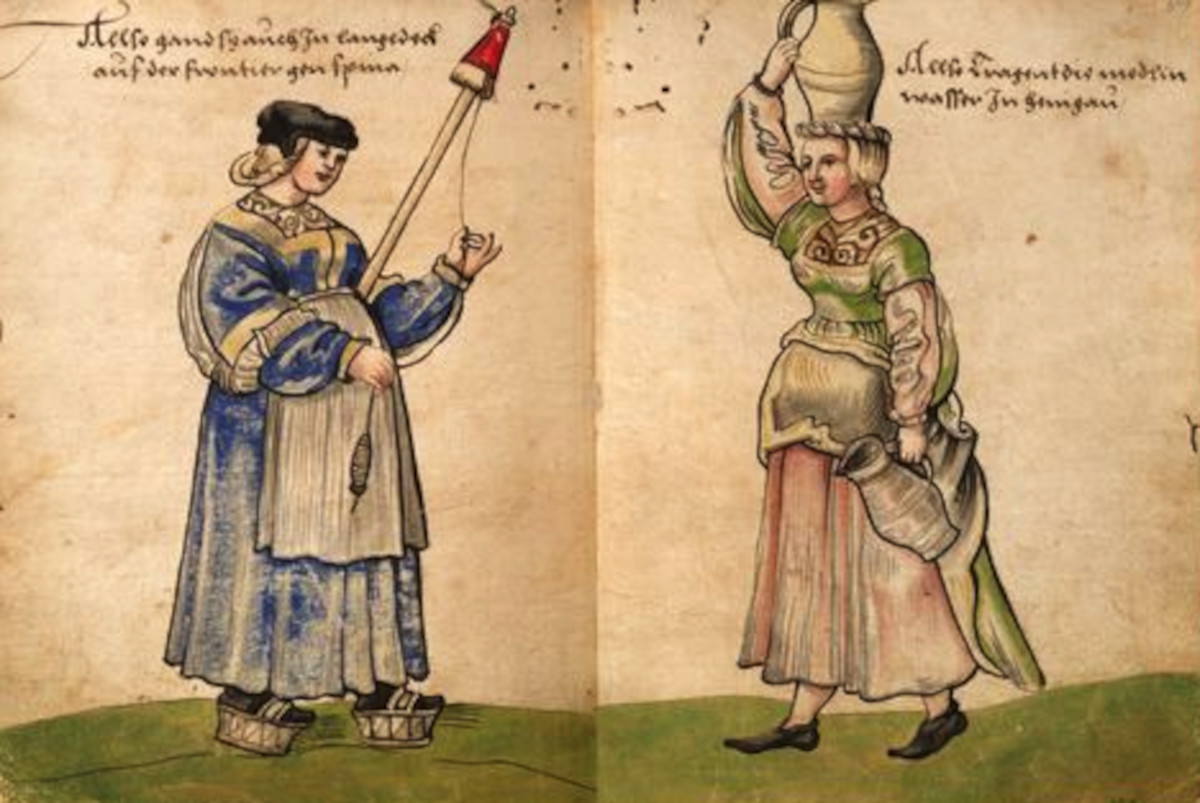 Allso gand sy auch Jn langedeck
auf der frontier gen spma
Allso Tragent die medlin
wasser Jn Henigau